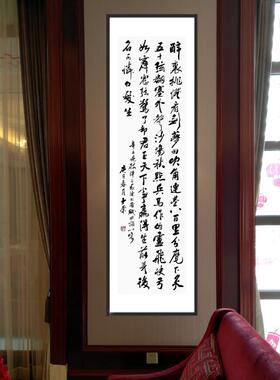 醉裏挑燈看劍夢回吹角連營八百里分麾下炙
五十弦翻塞外聲沙場秋點兵馬作的盧飛快弓
如霹靂弦驚了却君王天下事贏得生前身後
名可憐白髮生